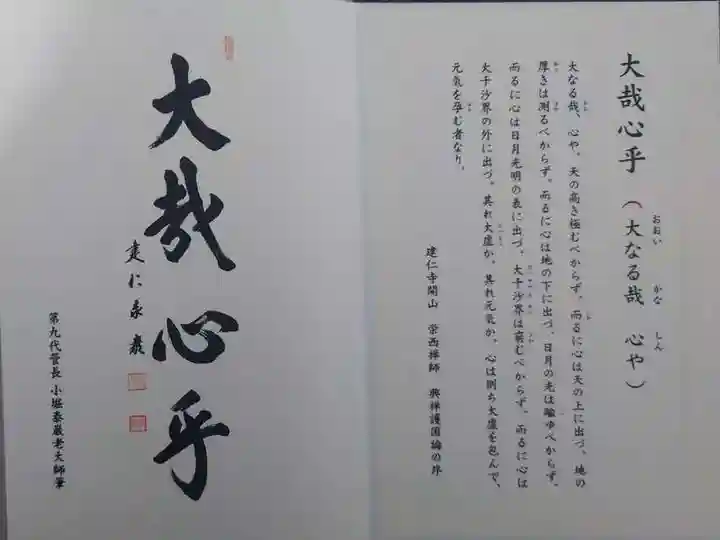 大哉心乎（大なる哉 心や）
おおい かな しん
大なる哉、心や。天の高き極むべからず。而るに心は天の上に出づ。地の
厚きは測るべからず。而るに心は地の下に出づ。日月の光は踰ゆべからず。
而るに心は日月光明の表に出づ。大千沙界は窮むべからず。而るに心は
大千沙界の外に出づ。其れ太虚か。其れ元氣か。心は則ち太虚を包んで、
元氣を孕む者なり。
建仁寺開山 栄西禅師 興禅護国論の序
大哉心乎
建仁泰巖
第九代管長 小堀泰巖老大師筆